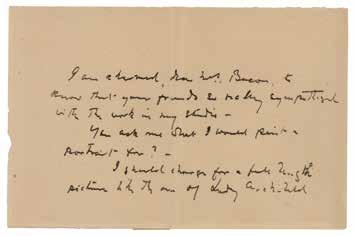 I am charmed, dear Mrs. Bacon, to
know that your friends so really sympathized
with the work in my studio -
You ask me what I would paint a
portrait for? -
I should charge for a full length
picture like the one of Lady Archibald